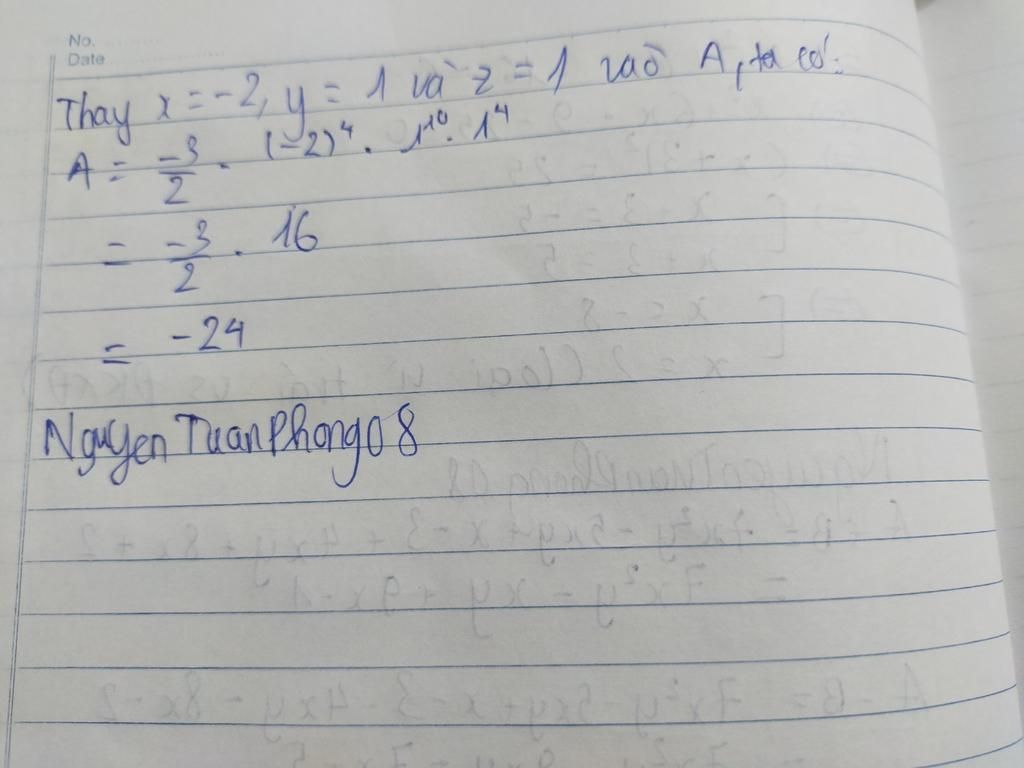 No.
Date
Thay x = -2, y = 1 và z = 1 vào A, ta có:
A = -3/2 . (-2)⁴ . 1¹⁰ . 1⁴
= -3/2 . 16
= -24
Nguyen Tuan Phong 08